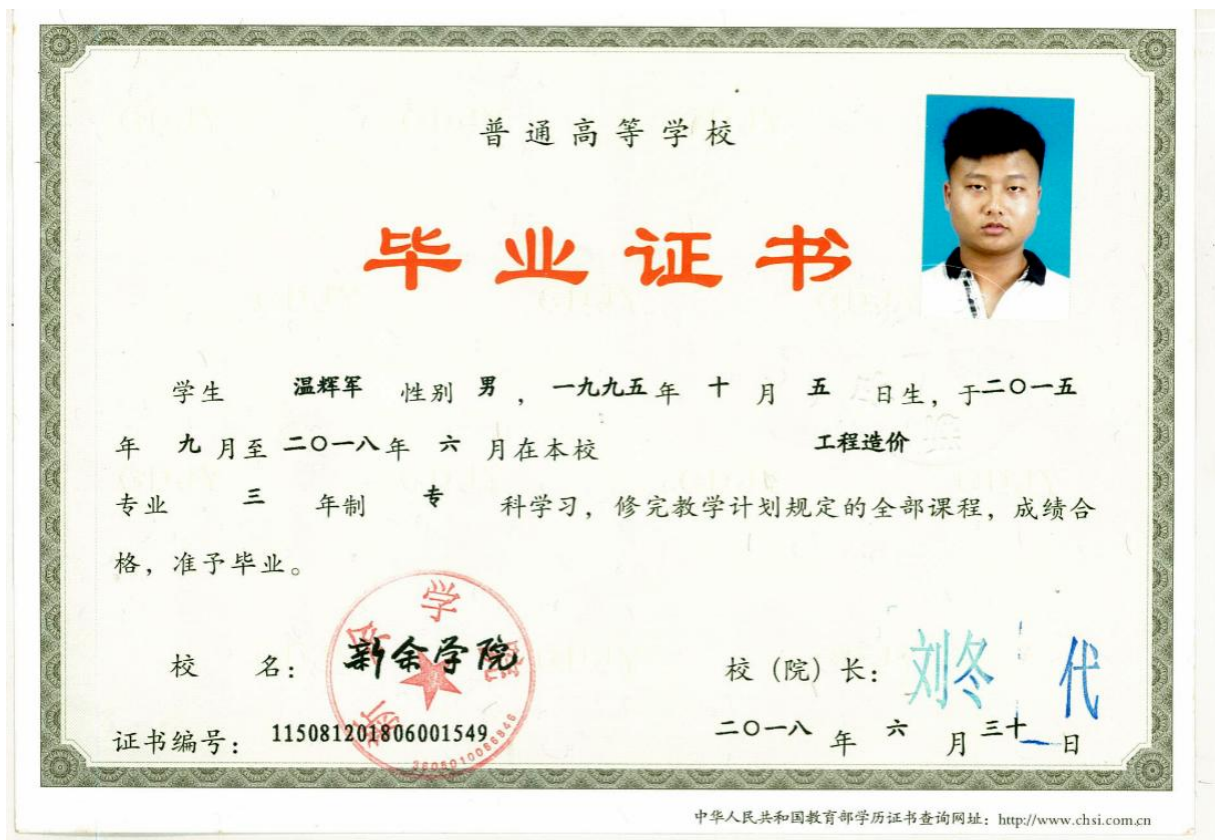 普通高等学校
毕业证书
学生 温辉军 性别 男 ，一九九五年 十 月 五 日生，于二〇一五
年 九 月至 二〇一八年 六 月在本校 工程造价
专业 三 年制 专 科学习，修完教学计划规定的全部课程，成绩合
格，准予毕业。
校 名： 新余学院
校（院）长： 刘冬 代
证书编号： 115081201806001549
二〇一八 年 六 月 三十 日
新余学院
中华人民共和国教育部学历证书查询网址：http://www.chsi.com.cn